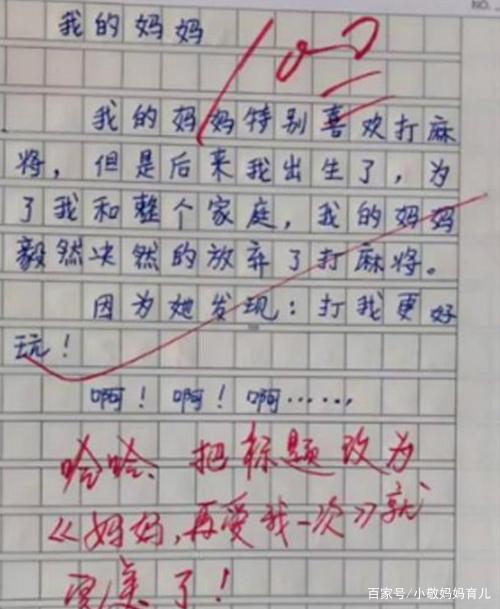 NO.
我的妈妈
我的妈妈特别喜欢打麻
将，但是后来我出生了，为
了我和整个家庭，我的妈妈
毅然决然的放弃了打麻将。
因为她发现：打我更好
玩！
啊！啊！啊……
哈哈、把标题改为
《妈妈，再爱我一次》就
更美了！
百家号/小敬妈妈育儿